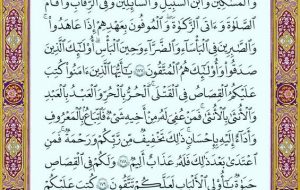 وَالْمَسَاكِينَ وَابْنَ السَّبِيلِ وَالسَّائِلِينَ وَفِي الرِّقَابِ وَأَقَامَ
الصَّلَوٰةَ وَءَاتَى الزَّكَوٰةَ وَالْمُوفُونَ بِعَهْدِهِمْ إِذَا عَاهَدُوا۟
وَالصَّابِرِينَ فِي الْبَأْسَاءِ وَالضَّرَّاءِ وَحِينَ الْبَأْسِ أُو۟لَٰئِكَ الَّذِينَ
صَدَقُوا۟ وَأُو۟لَٰئِكَ هُمُ الْمُتَّقُونَ ۝١٧٧ يَٰأَيُّهَا الَّذِينَ ءَامَنُوا۟ كُتِبَ
عَلَيْكُمُ الْقِصَاصُ فِي الْقَتْلَى الْحُرُّ بِالْحُرِّ وَالْعَبْدُ بِالْعَبْدِ
وَالْأُنثَىٰ بِالْأُنثَىٰ فَمَنْ عُفِيَ لَهُۥ مِنْ أَخِيهِ شَيْءٌ فَاتِّبَاعٌ بِالْمَعْرُوفِ
وَأَدَاءٌ إِلَيْهِ بِإِحْسَٰنٍ ذَٰلِكَ تَخْفِيفٌ مِّن رَّبِّكُمْ وَرَحْمَةٌ فَمَنِ
اعْتَدَىٰ بَعْدَ ذَٰلِكَ فَلَهُۥ عَذَابٌ أَلِيمٌ ۝١٧٨ وَلَكُمْ فِي الْقِصَاصِ
حَيَوٰةٌ يَٰأُو۟لِي الْأَلْبَٰبِ لَعَلَّكُمْ تَتَّقُونَ ۝١٧٩ كُتِبَ عَلَيْكُمْ